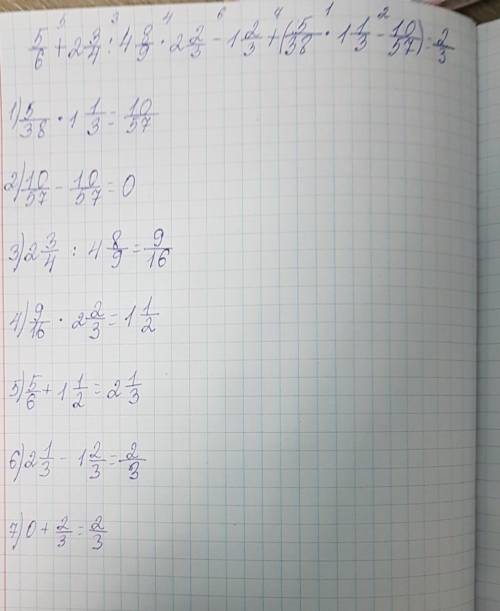 5 3 4 6 4 1 2
5/6 + 2 3/4 : 4 8/9 · 2 2/3 - 1 2/3 + (5/38 · 1 1/3 - 10/57) = 2/3
1) 5/38 · 1 1/3 = 10/57
2) 10/57 - 10/57 = 0
3) 2 3/4 : 4 8/9 = 9/16
4) 9/16 · 2 2/3 = 1 1/2
5) 5/6 + 1 1/2 = 2 1/3
6) 2 1/3 - 1 2/3 = 2/3
7) 0 + 2/3 = 2/3